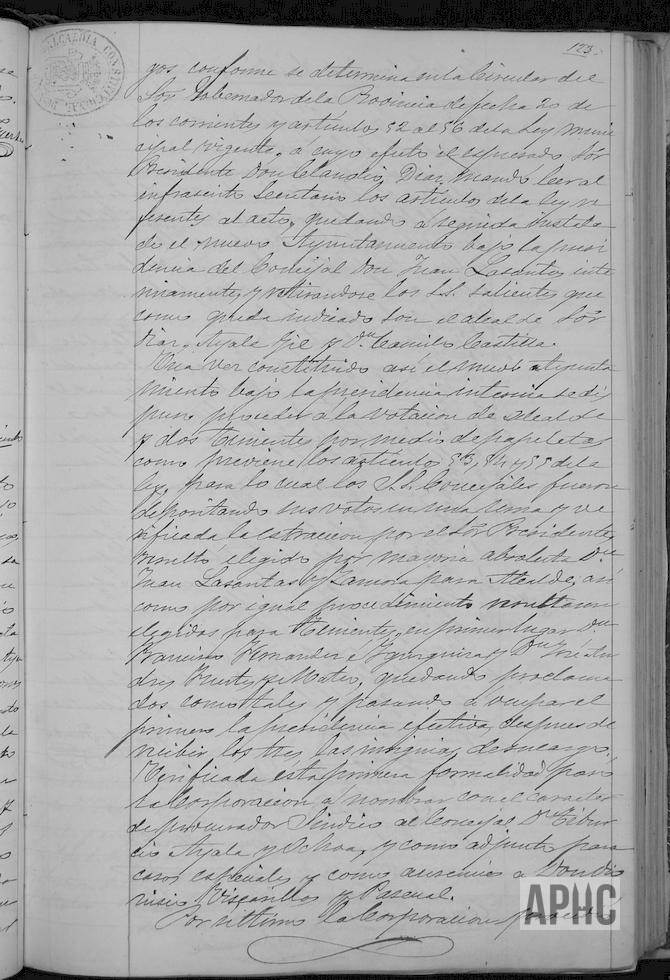 123
ALCALDIA CONSTITUCIONAL
gos conforme se determina en la Circular del
Sor Gobernador de la Provincia de fecha 20 de
los corrientes y articulos 52 al 56 de la Ley Muni
cipal vigente, a cuyo efecto el espresado Sor
Presidente Don Claudio Diaz, mandó leer al
infrascrito Secretario los articulos de la Ley re
ferentes al acto, quedando a seguida instala
do el nuevo Ayuntamiento bajo la presi
dencia del Concejal Don Juan Lasantas inte
rinamente y retirandose los S.S. salientes que
como queda indicado son el alcalde Sor
Diaz, Ayala Gil y Dn Camilo Castilla.
Una vez constituido asi el nuevo ayunta
miento bajo la presidencia interina se dis
puso proceder a la votacion de alcalde
y dos Tenientes por medio de papeletas
como previene los articulos 53, 54 y 55 de la
ley, para lo cual los S.S. Concejales fueron
depositando sus votos en una urna y ve
rificada la estraccion por el Sor Presidente
resultó elegido por mayoria absoluta Dn
Juan Lasantas y Zamora para Alcalde, asi
como por igual procedimiento resultaron
elegidos para Tenientes, en primer lugar Dn
Francisco Fernandez e y Dn José An
dres Fuertes y Mateo, quedando proclama
dos como tales y pasando a ocupar el
primero la presidencia efectiva, despues de
recibir los tres las insignias de su cargo.
Verificada esta primera formalidad pasó
la Corporacion a nombrar con el caracter
de procurador Sindico al Concejal Dn Tibur
cio Ayala y Ochoa, y como adjunto para
casos especiales y como ausencias a Don Dio
nisio y Pascual.
Por ultimo la Corporacion
APHC